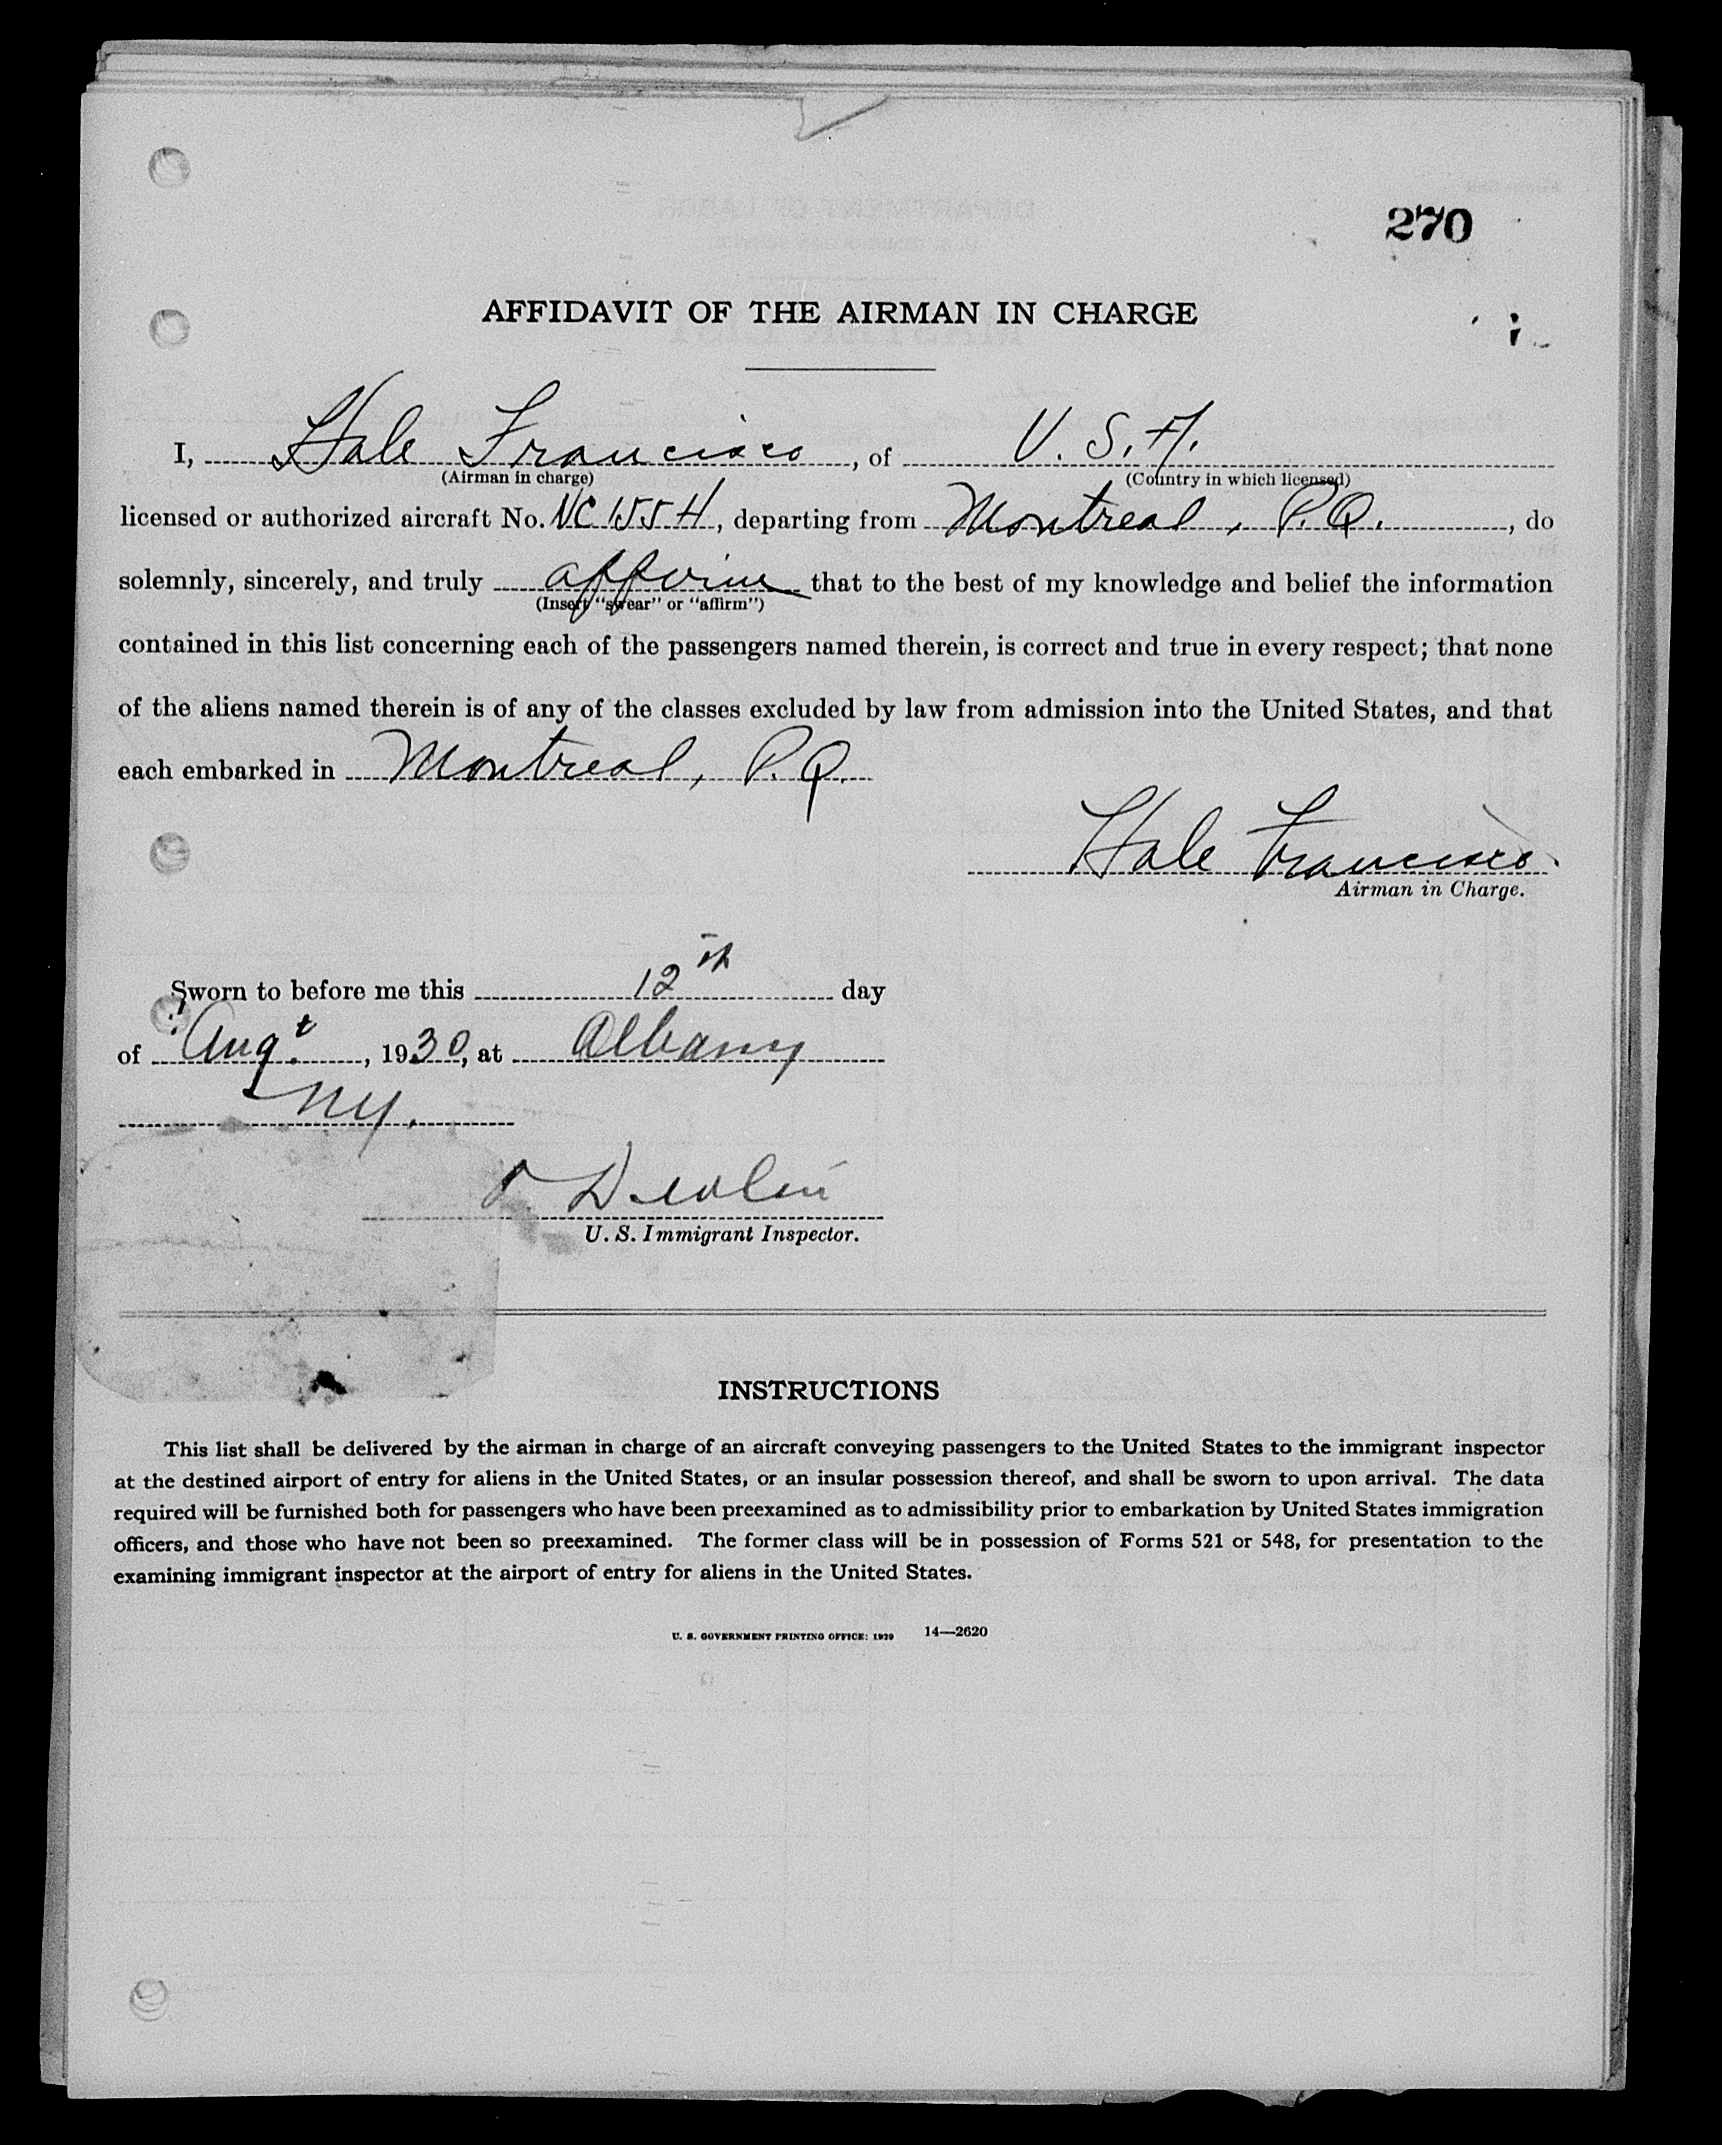 270
AFFIDAVIT OF THE AIRMAN IN CHARGE
I, Hale Francisco, of U. S. A.
(Airman in charge) (Country in which licensed)
licensed or authorized aircraft No. NC 155H, departing from Montreal, P.Q., do
solemnly, sincerely, and truly affirm that to the best of my knowledge and belief the information
(Insert "swear" or "affirm")
contained in this list concerning each of the passengers named therein, is correct and true in every respect; that none
of the aliens named therein is of any of the classes excluded by law from admission into the United States, and that
each embarked in Montreal, P.Q.
Hale Francisco.
Airman in Charge.
Sworn to before me this 12th day
of Augt., 1930, at Albany
NY.
Devlin
U. S. Immigrant Inspector.
INSTRUCTIONS
This list shall be delivered by the airman in charge of an aircraft conveying passengers to the United States to the immigrant inspector
at the destined airport of entry for aliens in the United States, or an insular possession thereof, and shall be sworn to upon arrival. The data
required will be furnished both for passengers who have been preexamined as to admissibility prior to embarkation by United States immigration
officers, and those who have not been so preexamined. The former class will be in possession of Forms 521 or 548, for presentation to the
examining immigrant inspector at the airport of entry for aliens in the United States.
U. S. GOVERNMENT PRINTING OFFICE: 1929 14—2620